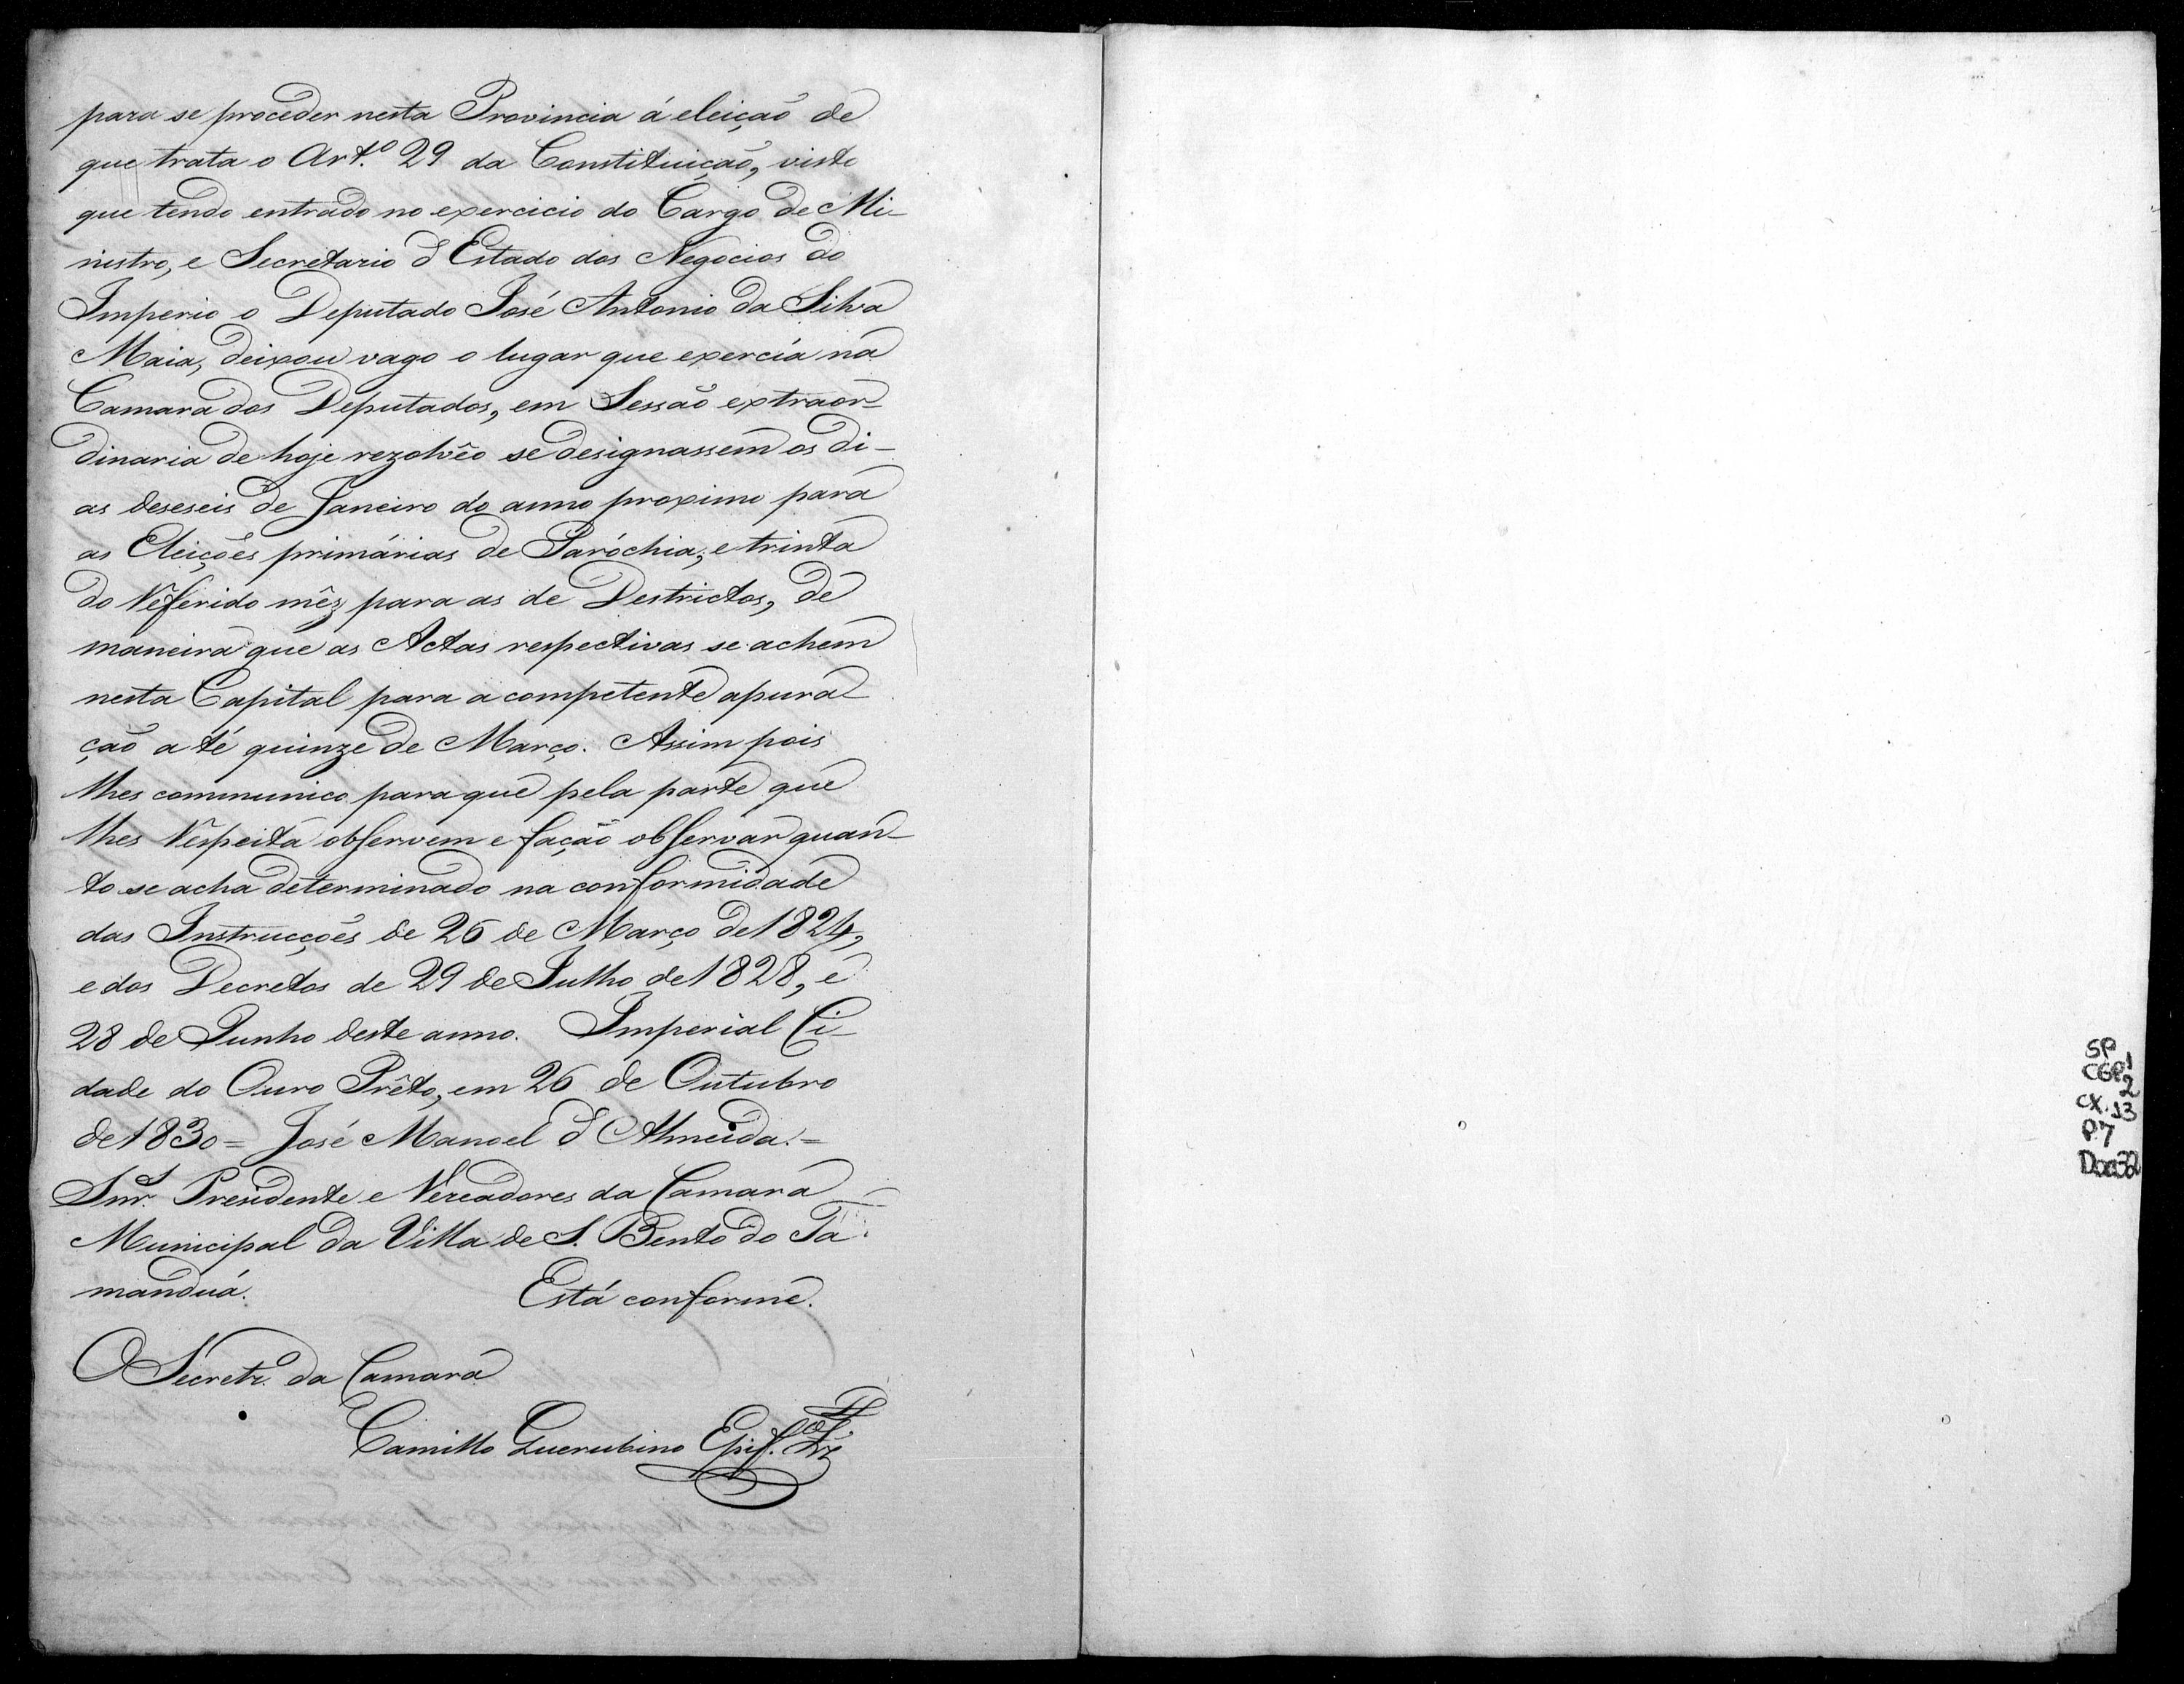 para se proceder nesta Provincia á eleição de
que trata o Art.º 29 da Constituição, visto
que tendo entrado no exercicio do Cargo de Mi-
nistro, e Secretario d'Estado dos Negocios do
Imperio o Deputado José Antonio da Silva
Maia, deixou vago o lugar que exercía na
Camara dos Deputados, em Sessão extraor-
dinaria de hoje rezolvêo se designassem os di-
as deseseis de Janeiro do anno proximo para
as Eleições primárias de Paróchia, e trinta
do Referido mêz para as de Destrictos, de
maneira que as Actas respectivas se achem
nesta Capital para a competente apura-
ção a té quinze de Março. Assim pois
lhes communico para que pela parte que
lhes Respeita observem e fação observar quan-
to se acha determinado na conformidade
das Instrucções de 26 de Março de 1824,
e dos Decretos de 29 de Julho de 1828, e
28 de Junho deste anno. Imperial Ci-
dade do Ouro Prêto, em 26 de Outubro
de 1830 = José Manoel d'Almeida. =
Snr.s Presidente e Vereadores da Camara
Municipal da Villa de S. Bento do Ta-
manduá. Está conforme.
O Secretr.º da Camara
Camillo Querubino Epif.
SP
CGP1
2
CX.13
P.7
Doc32